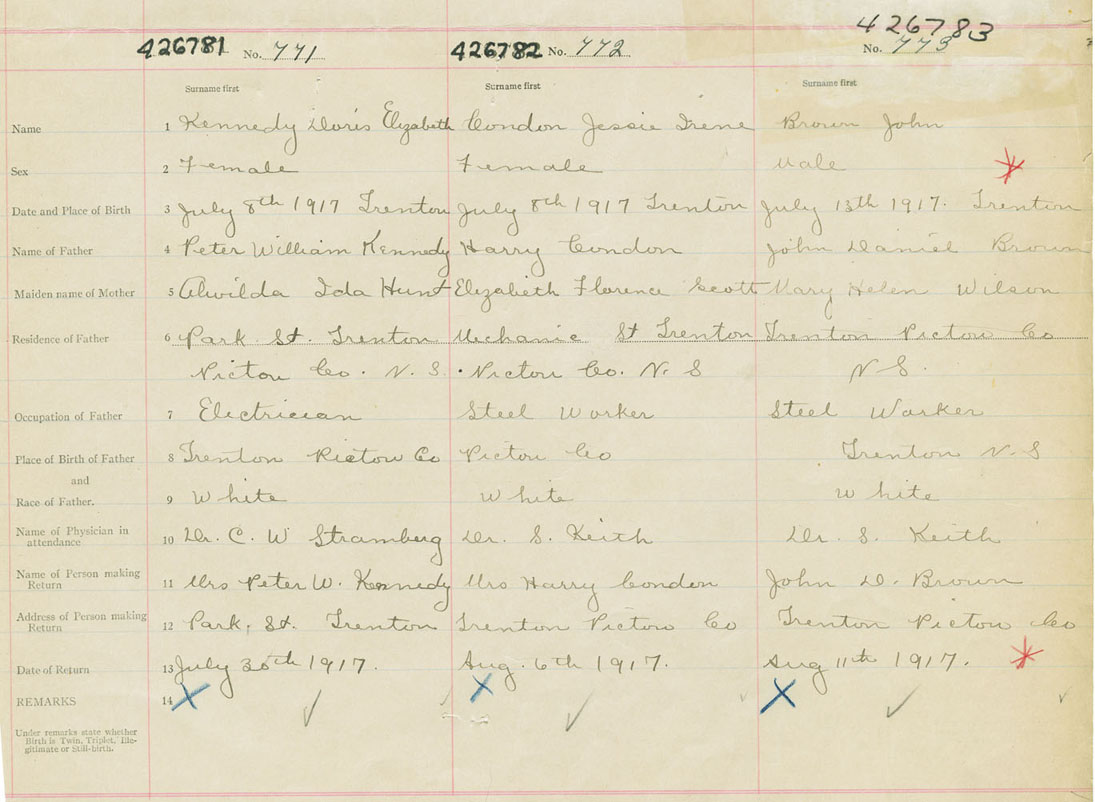 426781 No. 771 426782 No. 772 426783 No. 773
Surname first Surname first Surname first
Name 1 Kennedy Doris Elizabeth Condon Jessie Irene Brown John
Sex 2 Female Female Male
Date and Place of Birth 3 July 8th 1917 Trenton July 8th 1917 Trenton July 13th 1917. Trenton
Name of Father 4 Peter William Kennedy Harry Condon John Daniel Brown
Maiden name of Mother 5 Alwilda Ida Hunt Elizabeth Florence Scott Mary Helen Wilson
Residence of Father 6 Park St. Trenton Mechanic St Trenton Trenton Pictou Co
Pictou Co. N. S. Pictou Co. N. S N S.
Occupation of Father 7 Electrician Steel Worker Steel Worker
Place of Birth of Father 8 Trenton Pictou Co Pictou Co Trenton N. S
and
Race of Father. 9 White White White
Name of Physician in
attendance 10 Dr. C. W Stramberg Dr. S. Keith Dr. S. Keith
Name of Person making
Return 11 Mrs Peter W. Kennedy Mrs Harry Condon John D. Brown
Address of Person making
Return 12 Park, St. Trenton Trenton Pictou Co Trenton Pictou Co
Date of Return 13 July 30th 1917. Aug. 6th 1917. Aug 11th 1917.
REMARKS 14
Under remarks state whether
Birth is Twin, Triplet, Ille-
gitimate or Still-birth.